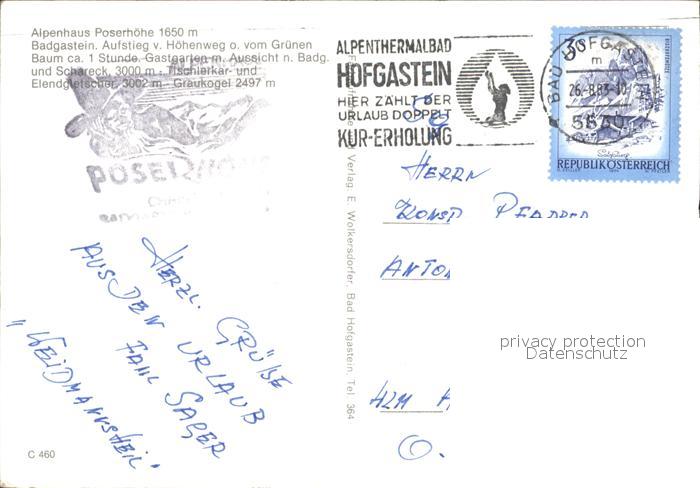 Alpenhaus Poserhöhe 1650 m
Badgastein. Aufstieg v. Höhenweg o. vom Grünen
Baum ca. 1 Stunde. Gastgarten m. Aussicht n. Badg.
und Schareck, 3000 m - Tischlerkar- und
Elendgletscher, 3002 m - Graukogel 2497 m
POSERHÖHE
HERZL. GRÜßE
AUS DEN URLAUB
FAM. SAGER
"WEIDMANNSHEIL"
C 460
Verlag: E. Wolkersdorfer, Bad Hofgastein. Tel. 364
ALPENTHERMALBAD
HOFGASTEIN
HIER ZÄHLT DER
URLAUB DOPPELT
KUR-ERHOLUNG
BAD HOFGASTEIN
m
26.-8.83-10
5630
S3
REPUBLIK ÖSTERREICH
HERRN
ANTON
privacy protection
Datenschutz